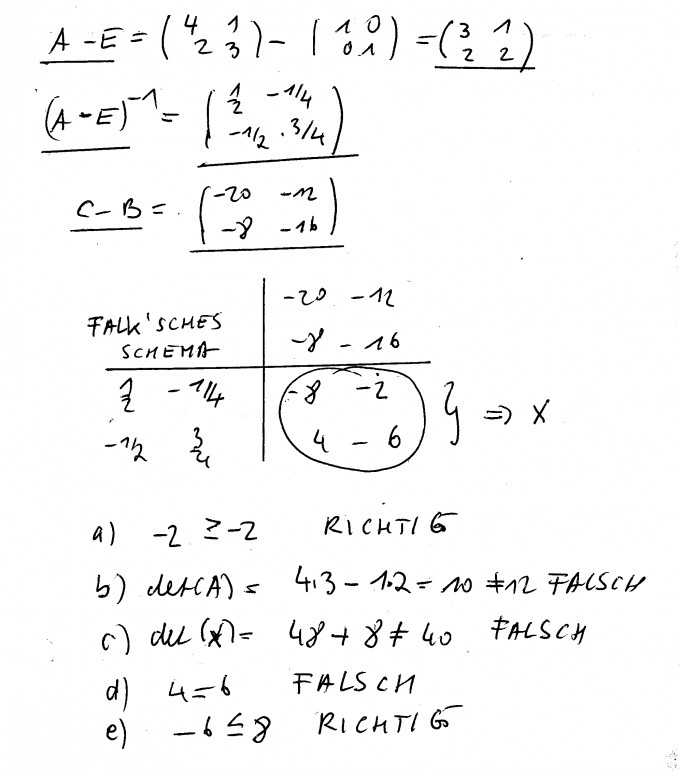 A - E = ( 4 1 2 3 ) - ( 1 0 0 1 ) = ( 3 1 2 2 )
(A - E)^-1 = ( 1/2 -1/4 -1/2 . 3/4 )
C - B = . ( -20 -12 -8 -16 )
-20 -12
FALK'SCHES -8 - 16
SCHEMA
1/2 - 1/4 -8 -2
-1/2 3/4 4 - 6 } ⇒ X
a) -2 ≥ -2 RICHTIG
b) det(A) = 4.3 - 1.2 = 10 ≠ 12 FALSCH
c) det (X) = 48 + 8 ≠ 40 FALSCH
d) 4 = 6 FALSCH
e) -6 ≤ 8 RICHTIG